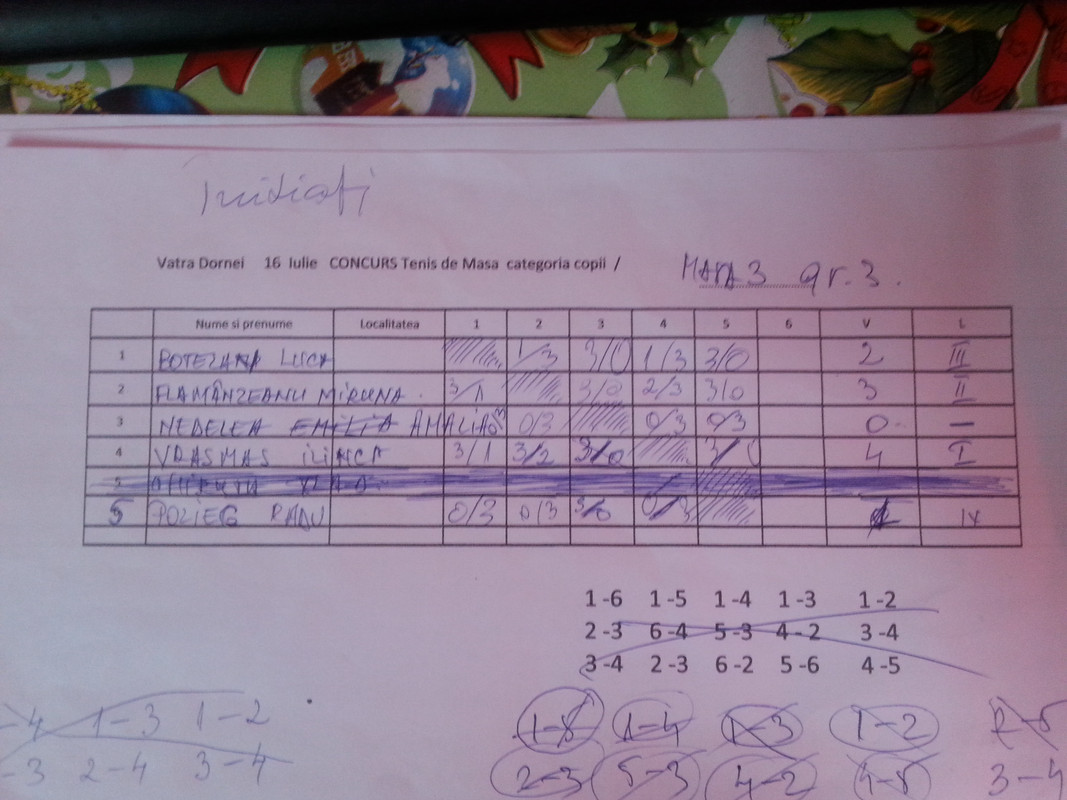 Initiați
Vatra Dornei 16 Iulie CONCURS Tenis de Masa categoria copii / MASA 3 gr. 3.
Nume si prenume Localitatea 1 2 3 4 5 6 V L
1 LUCA 1/3 3/0 1/3 3/0 2 III
2 FLAMÂNZEANU MIRUNA 3/1 3/0 2/3 3/0 3 II
3 NEDELEA EMILIA AMALIA 0/3 0/3 0/3 0/3 0 —
4 VRASMAS ILINCA 3/1 3/2 3/0 3/0 4 I
5
5 RADU 0/3 0/3 3/0 0/3 1 IV
1 -6 1 -5 1 -4 1 -3 1 -2
2 -3 6 -4 5 -3 4 - 2 3 -4
3 -4 2 -3 6 -2 5 -6 4 -5
-4 1-3 1-2 1-5 1-4 1-3 1-2 2-5
-3 2-4 3-4 2-3 5-3 4-2 4-5 3-4